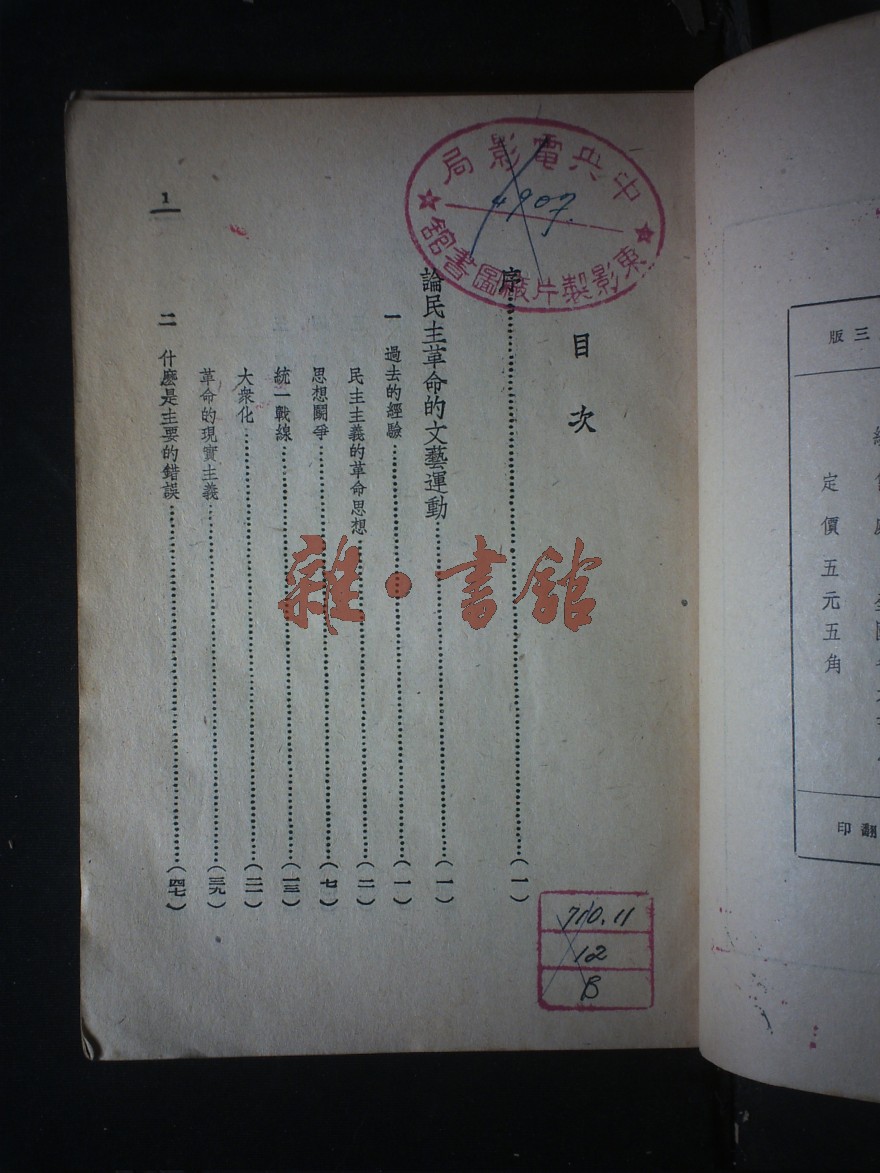 目次
序……(一)
論民主革命的文藝運動……(一)
一 過去的經驗……(一)
民主主義的革命思想……(二)
思想鬭爭……(七)
統一戰線……(一三)
大衆化……(二一)
革命的現實主義……(三九)
二 什麽是主要的錯誤……(四七)
1
中央電影局
東影製片廠圖書舘
4907.
710.11
12
B
雜·書舘
三版
定價五元五角
翻印